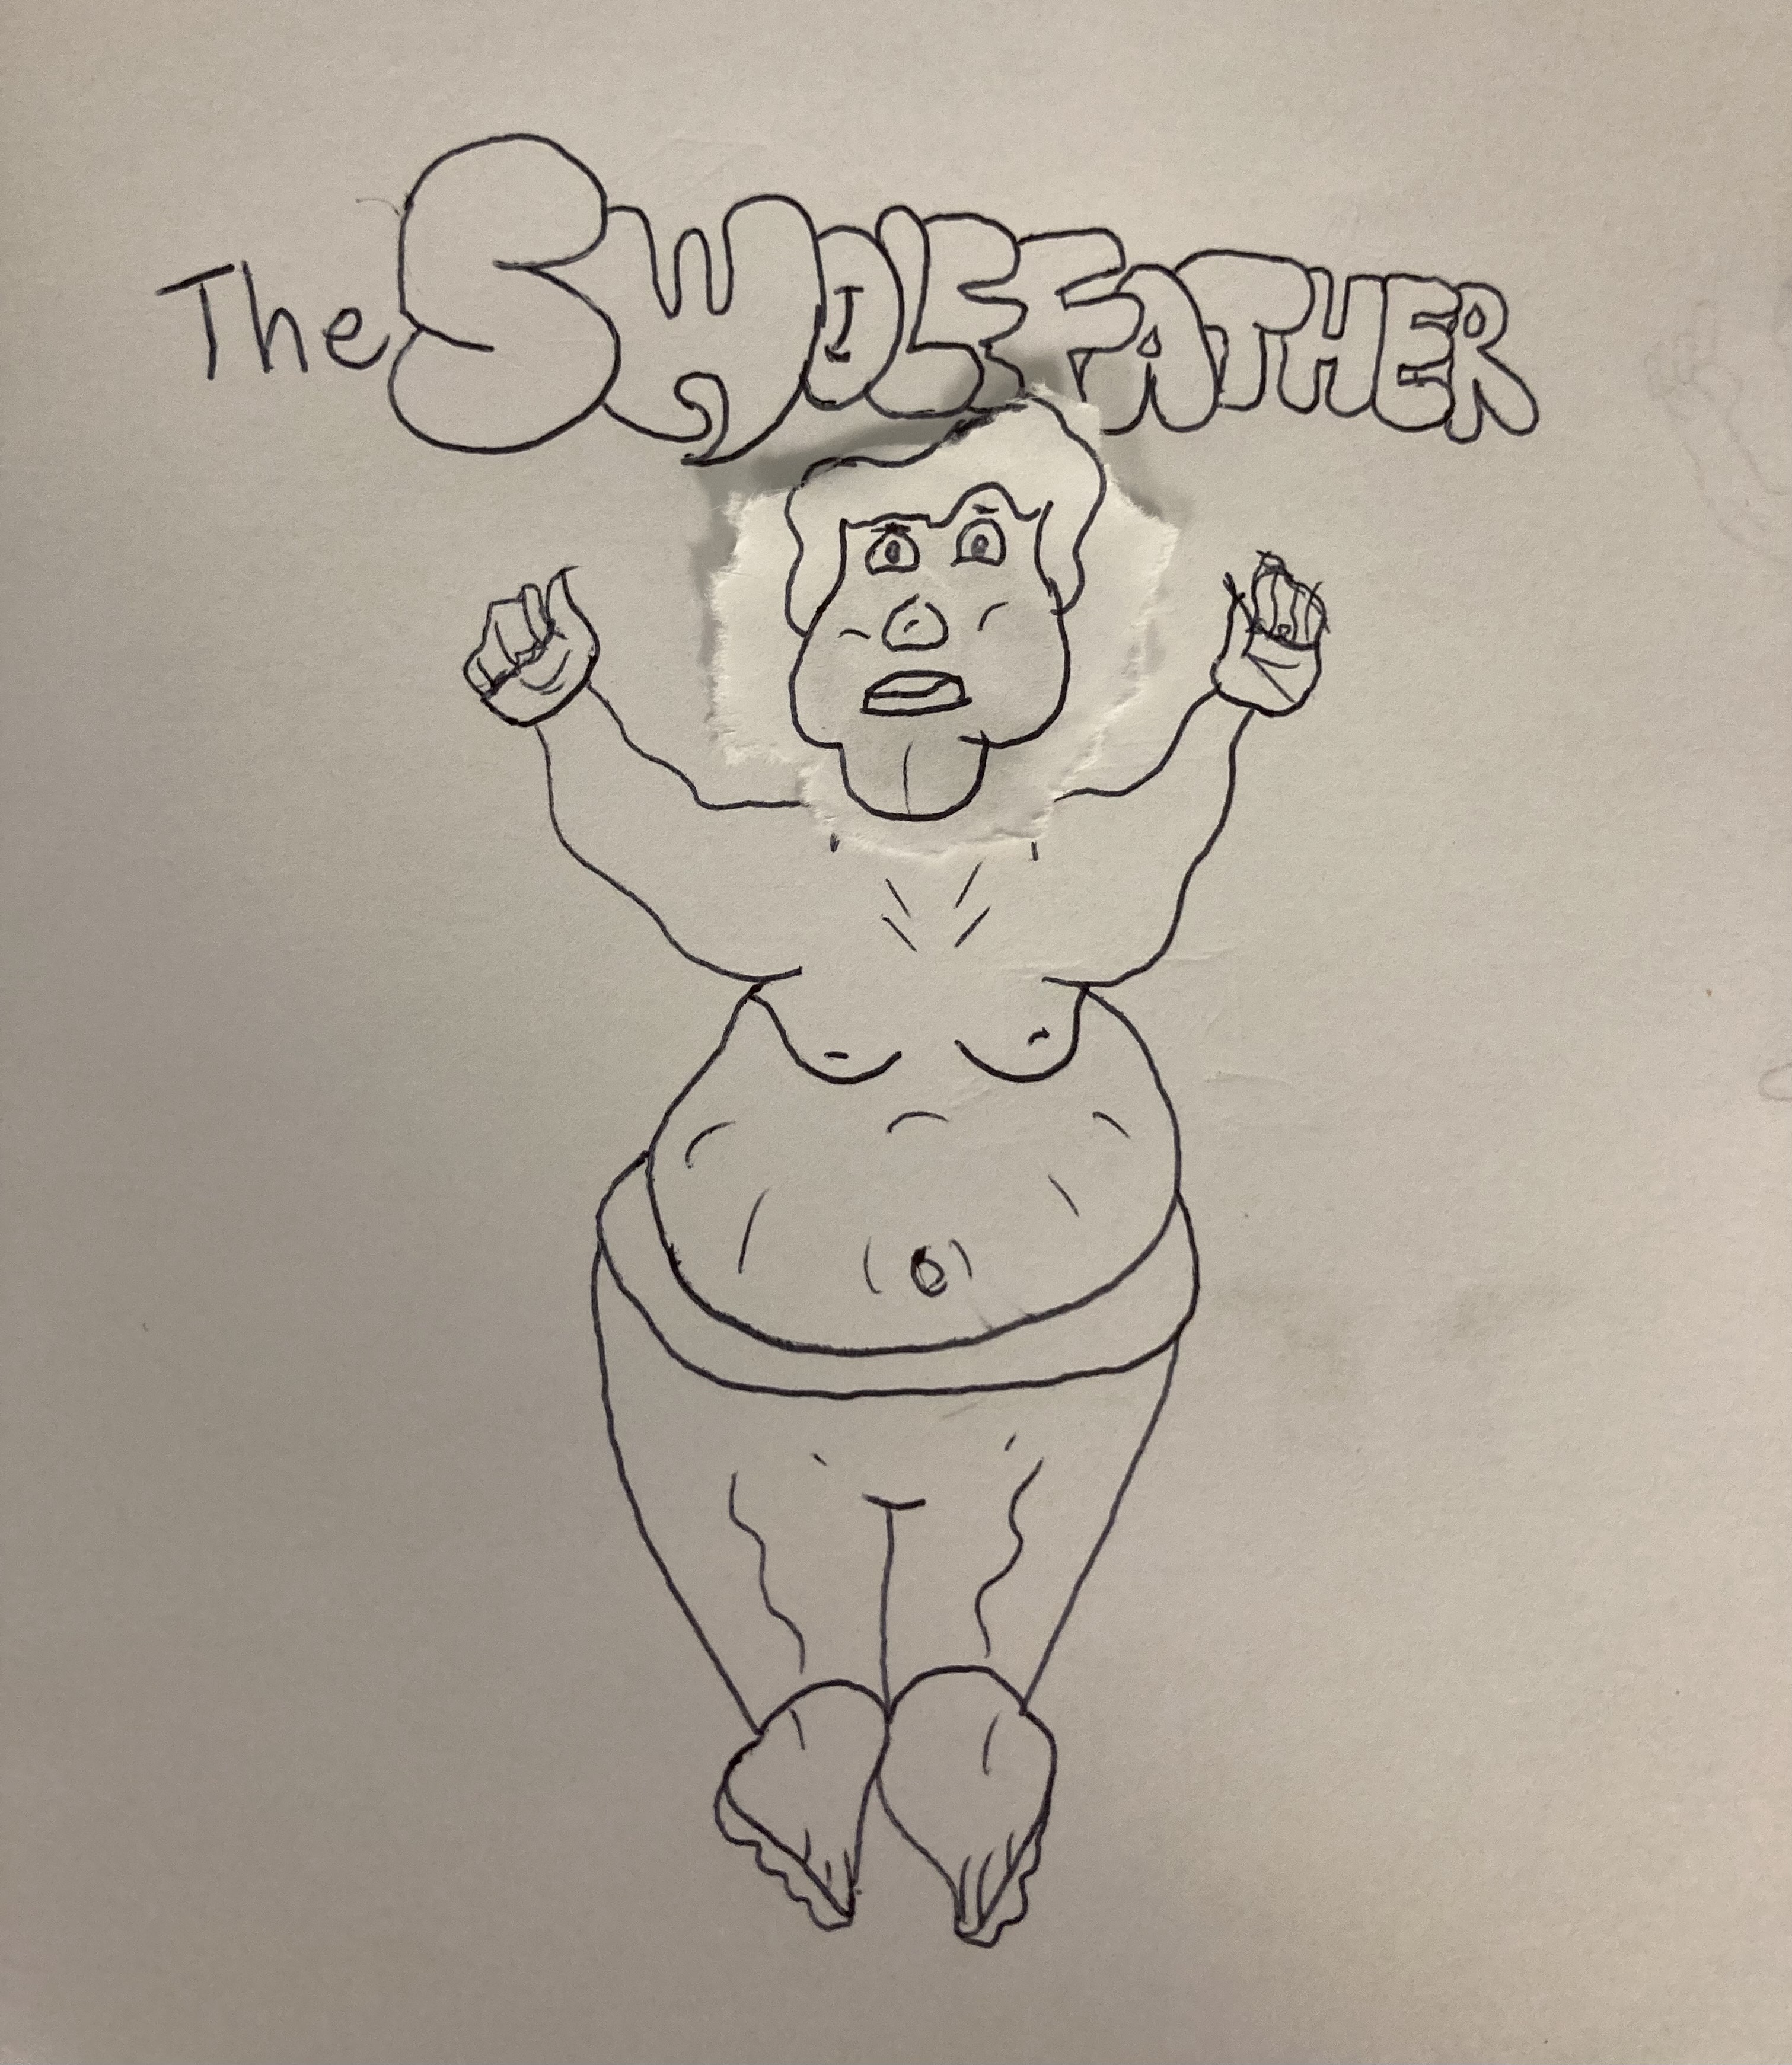 The SWOLEFATHER